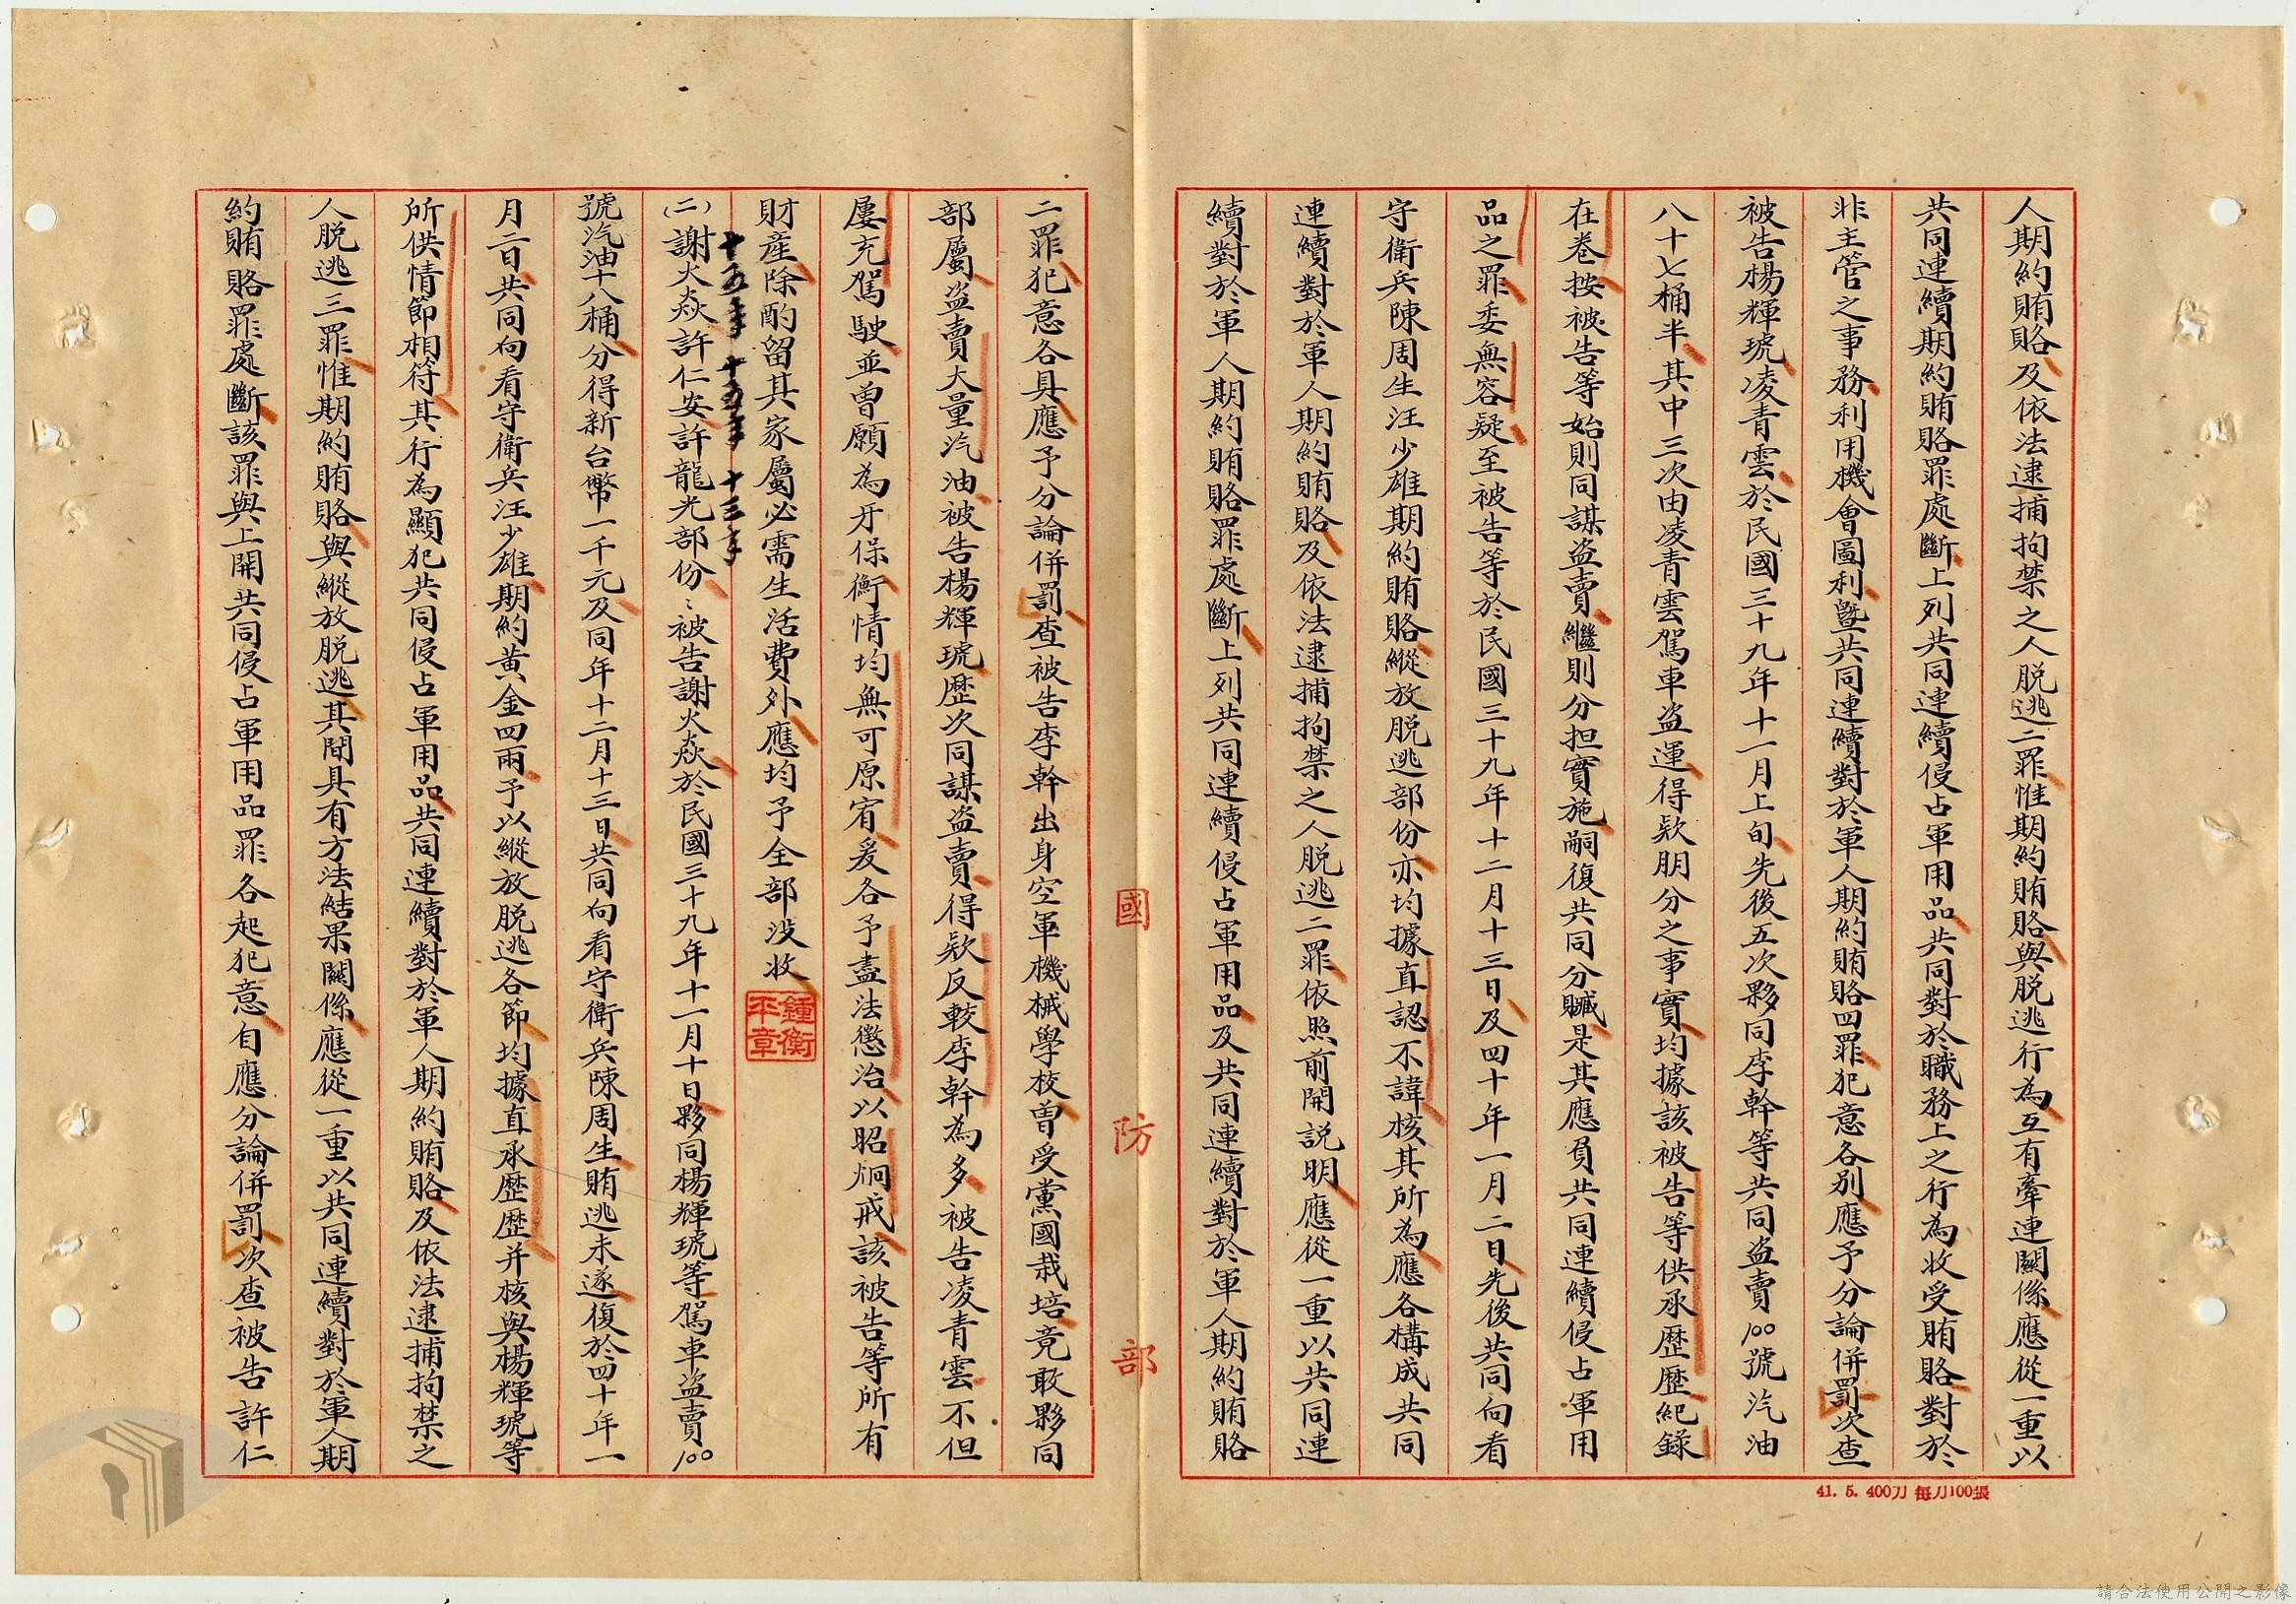 人期約賄賂及依法逮捕拘禁之人脫逃二罪惟期約賄賂與脫逃行為互有牽連關係應從一重以
共同連續期約賄賂罪處斷上列共同連續侵占軍用品共同對於職務上之行為收受賄賂對於
非主管之事務利用機會圖利暨共同連續對於軍人期約賄賂四罪犯意各別應予分論併罰次查
被告楊輝琥凌青雲於民國三十九年十一月上旬先後五次夥同李幹等共同盜賣100號汽油
八十七桶半其中三次由凌青雲駕車盜運得款朋分之事實均據該被告等供承歷歷紀錄
在卷按被告等始則同謀盜賣繼則分担實施嗣復共同分贓是其應負共同連續侵占軍用
品之罪委無容疑至被告等於民國三十九年十二月十三日及四十年一月二日先後共同向看
守衛兵陳周生汪少雄期約賄賂縱放脫逃部份亦均據直認不諱核其所為應各構成共同
連續對於軍人期約賄賂及依法逮捕拘禁之人脫逃二罪依照前開説明應從一重以共同連
續對於軍人期約賄賂罪處斷上列共同連續侵占軍用品及共同連續對於軍人期約賄賂
國防部
41. 5. 400刀 每刀100張
二罪犯意各具應予分論併罰查被告李幹出身空軍機械學校曾受黨國栽培竟敢夥同
部屬盜賣大量汽油被告楊輝琥歷次同謀盜賣得款反較李幹為多被告凌青雲不但
屢充駕駛並曾願為牙保衡情均無可原宥爰各予盡法懲治以昭炯戒該被告等所有
財產除酌留其家屬必需生活費外應均予全部没收
鍾衡平章
十五年 十五年 十三年
(二)謝火焱許仁安許龍光部份：被告謝火焱於民國三十九年十一月十日夥同楊輝琥等駕車盜賣100
號汽油十八桶分得新台幣一千元及同年十二月十三日共同向看守衛兵陳周生賄逃未遂復於四十年一
月二日共同向看守衛兵汪少雄期約黃金四兩予以縱放脫逃各節均據直承歷歷并核與楊輝琥等
所供情節相符其行為顯犯共同侵占軍用品共同連續對於軍人期約賄賂及依法逮捕拘禁之
人脫逃三罪惟期約賄賂與縱放脫逃其間具有方法結果關係應從一重以共同連續對於軍人期
約賄賂罪處斷該罪與上開共同侵占軍用品罪各起犯意自應分論併罰次查被告許仁
請合法使用公開之影像